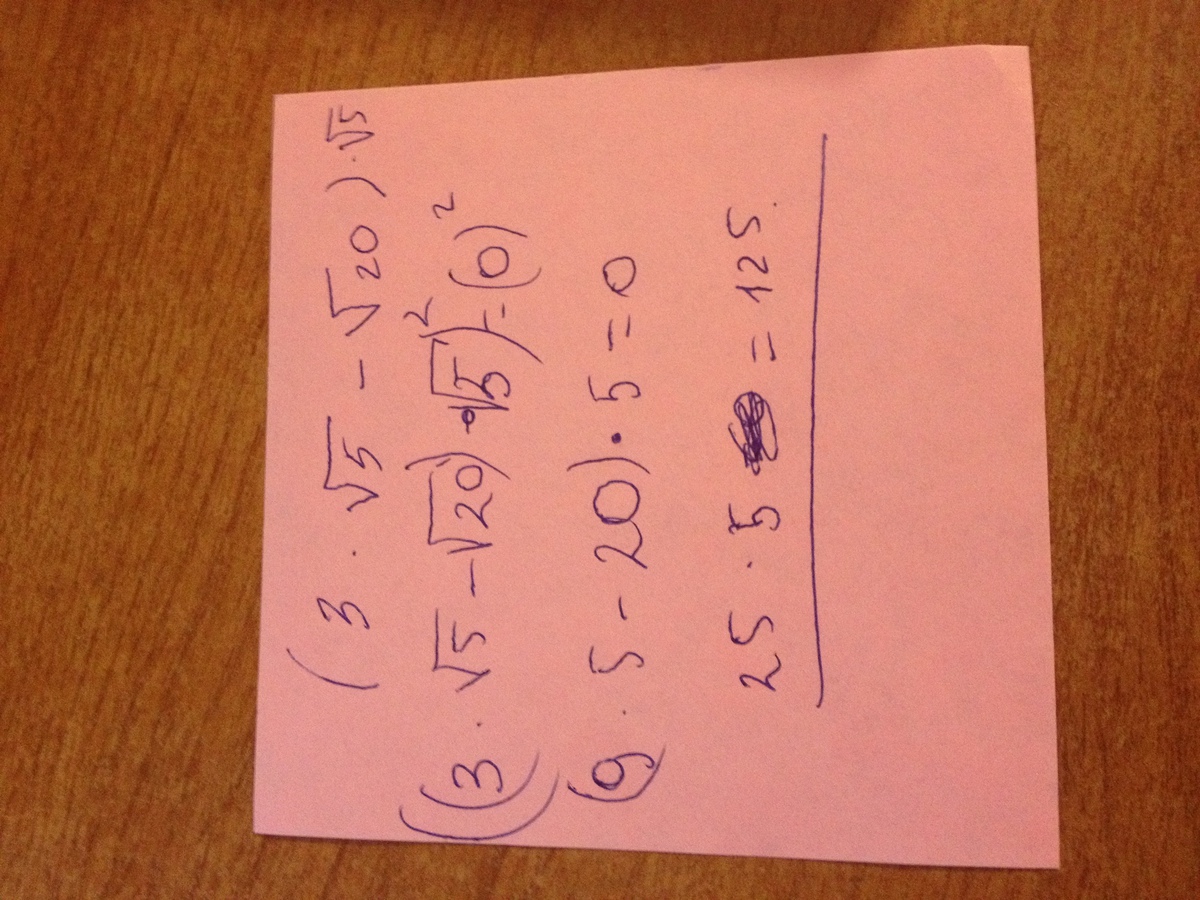 (3 · √5 - √20) · √5
((3 · √5 - √20) · √5)² = (0)²
(9 · 5 - 20) · 5 = 0
25 · 5 = 125.